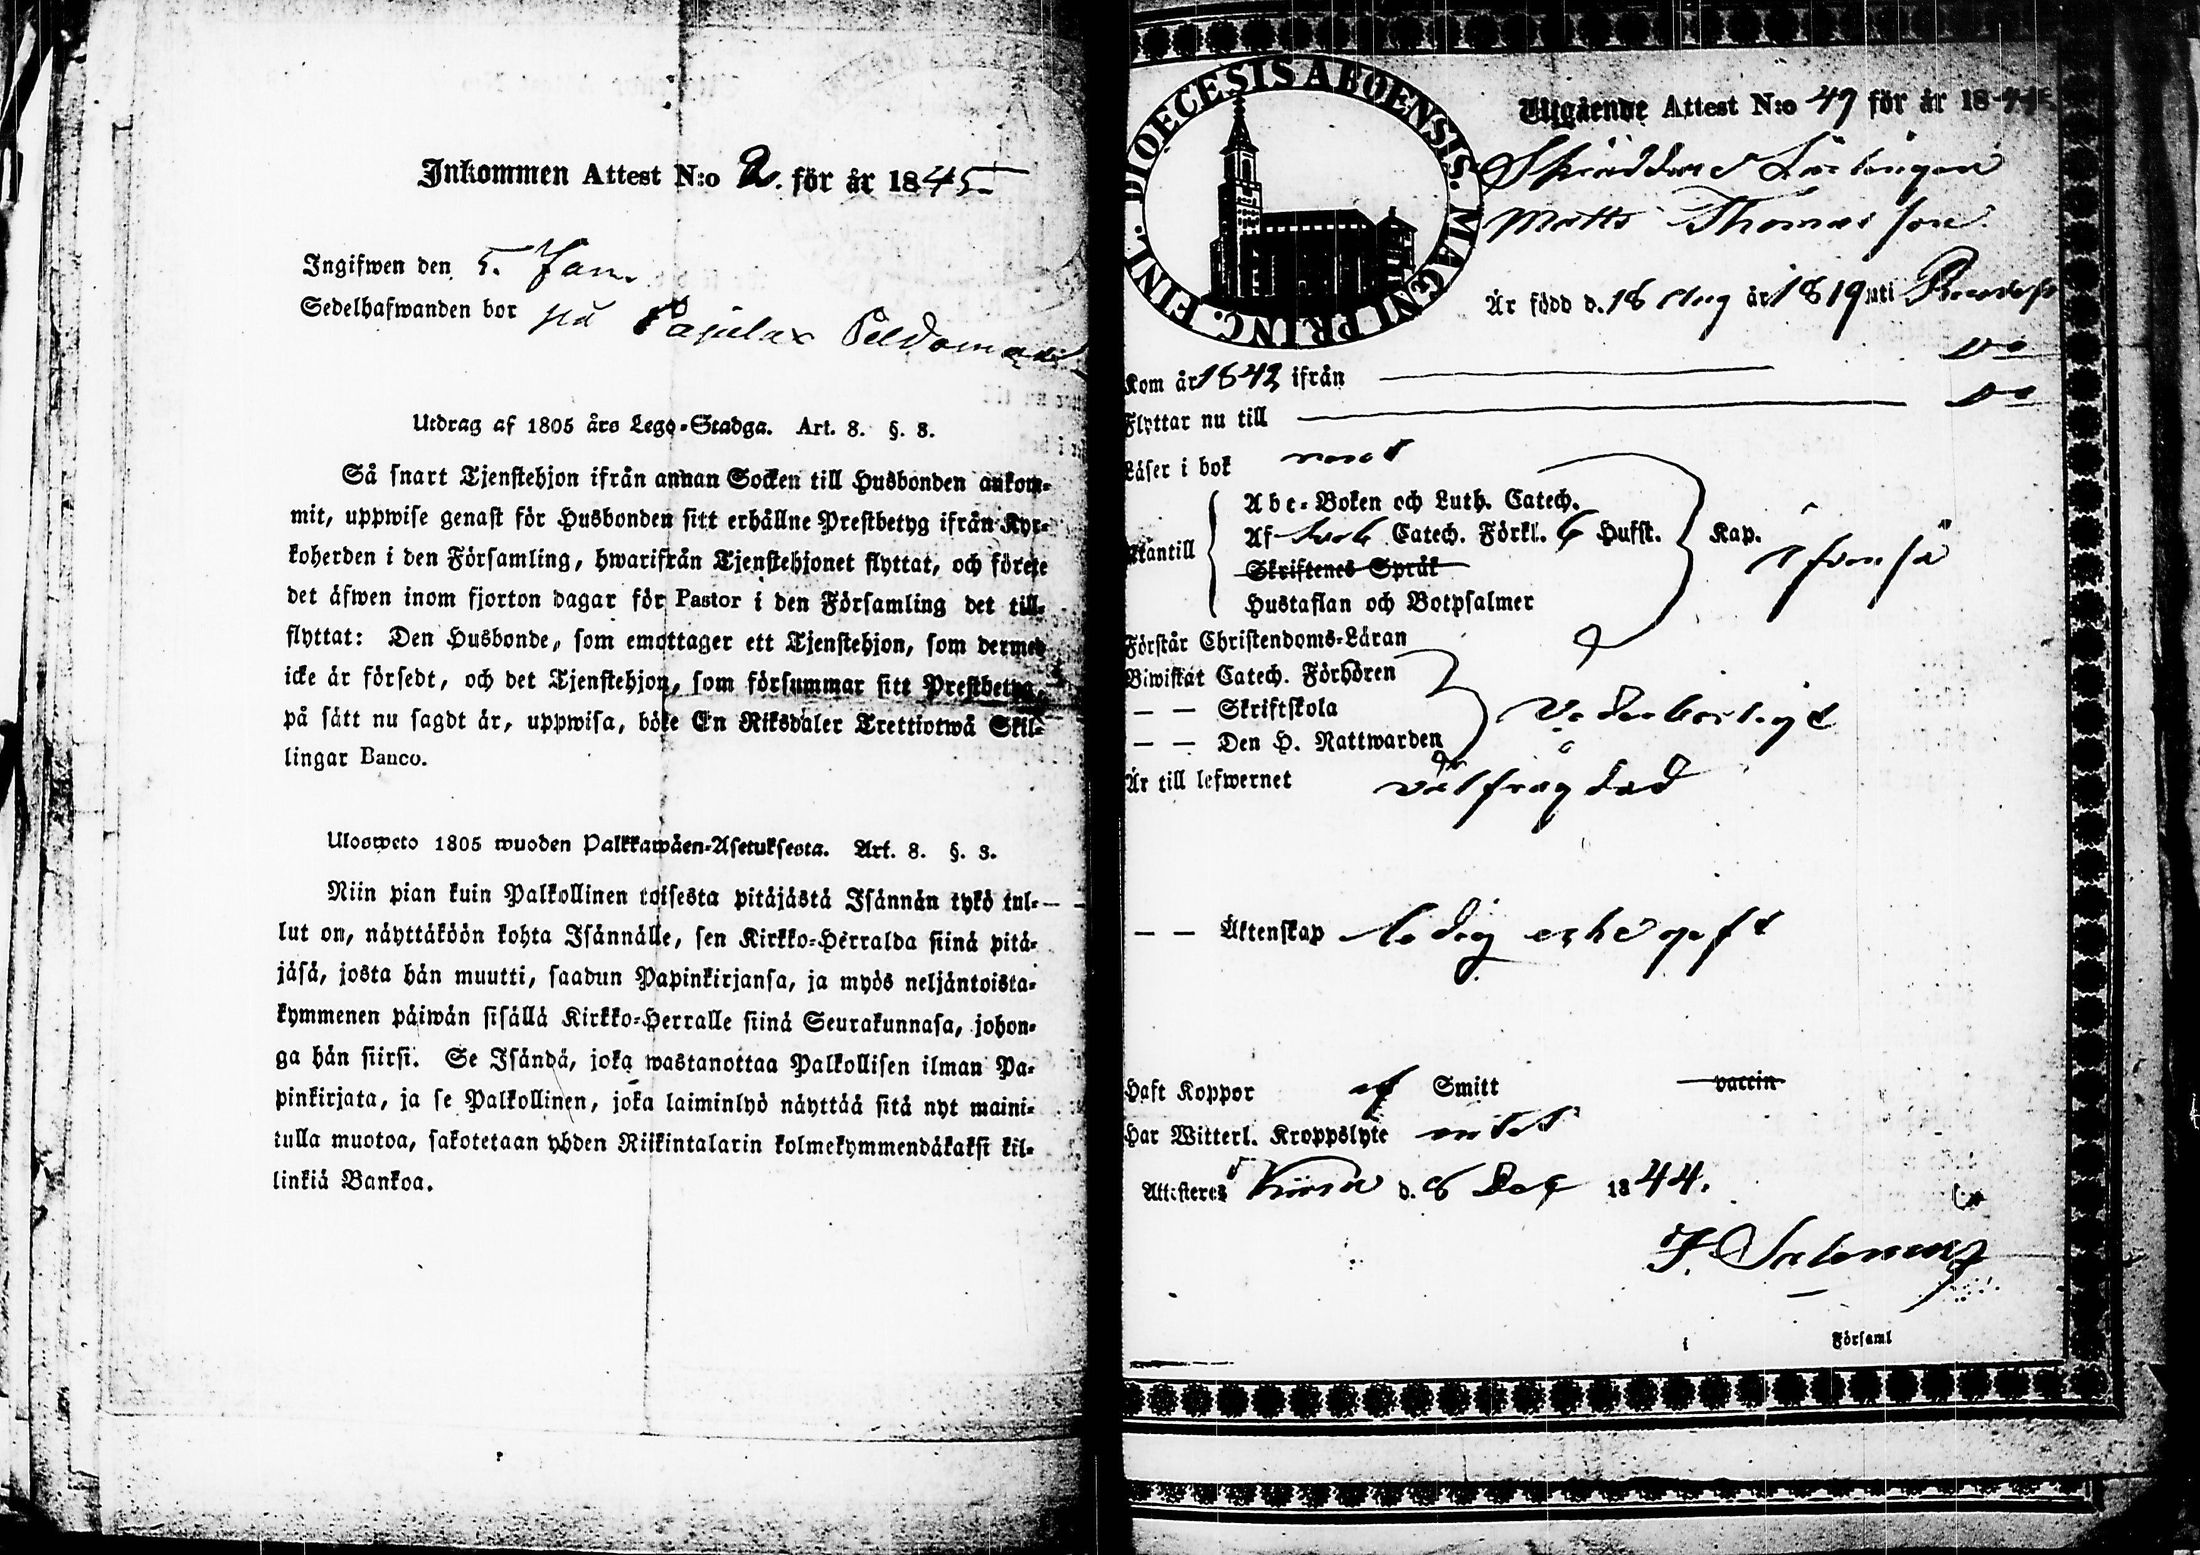 Inkommen Attest N:o 2. för år 1845.
Ingifwen den 5. Jan.
Sedelhafwanden bor på Pajulax
Utdrag af 1805 års Lego-Stadga. Art. 8. §. 8.
Så snart Tjenstehjon ifrån annan Socken till Husbonden ankom-
mit, uppwise genast för Husbonden sitt erhållne Prestbetyg ifrån Kyr-
koherden i den Församling, hwarifrån Tjenstehjonet flyttat, och förete
det äfwen inom fjorton dagar för Pastor i den Församling det till-
flyttat: Den Husbonde, som emottager ett Tjenstehjon, som dermed
icke är försedt, och det Tjenstehjon, som försummar sitt Prestbetyg,
på sätt nu sagdt är, uppwisa, böte En Riksdaler Trettiotwå Skil-
lingar Banco.
Ulosweto 1805 wuoden Palkkawäen-Asetuksesta. Art. 8. §. 8.
Niin pian kuin Palkollinen toisesta pitäjästä Isännän tykö tul-
lut on, näyttäköön kohta Isännälle, sen Kirkko-Herralda siinä pitä-
jäsä, josta hän muutti, saadun Papinkirjansa, ja myös neljäntoista-
kymmenen päiwän sisällä Kirkko-Herralle siinä Seurakunnasa, johon-
ga hän siirsi. Se Isändä, joka wastanottaa Palkollisen ilman Pa-
pinkirjata, ja se Palkollinen, joka laiminlyö näyttää sitä nyt maini-
tulla muotoa, sakotetaan yhden Riikintalarin kolmekymmendäkaksi kil-
linkiä Bankoa.
FINL. DIOECESIS ABOENSIS. MAGNI PRINC.
Utgående Attest N:o 49 för år 1844
Skräddare Lärlingen
Matts Thomasson
Är född d. 18 Aug år 1819 uti
Do
Kom år 1842 ifrån
Do
Flyttar nu till
Läser i bok
Abc-Boken och Luth. Catech.
Utantill Af Catech. Förkl. 6 Hufst. Kap.
Skriftenes Språk
Hustaflan och Botpsalmer
Förstår Christendoms-Läran
Biwistat Catech. Förhören
— — Skriftskola Vederbörligt
— — Den H. Nattwarden
Är till lefwernet välfrägdad
— — Äktenskap ledig
Haft Koppor ej Smitt vaccin
Har Witterl. Kroppslyte intet
Attesteres d. 8 Dec 1844.
i Församl